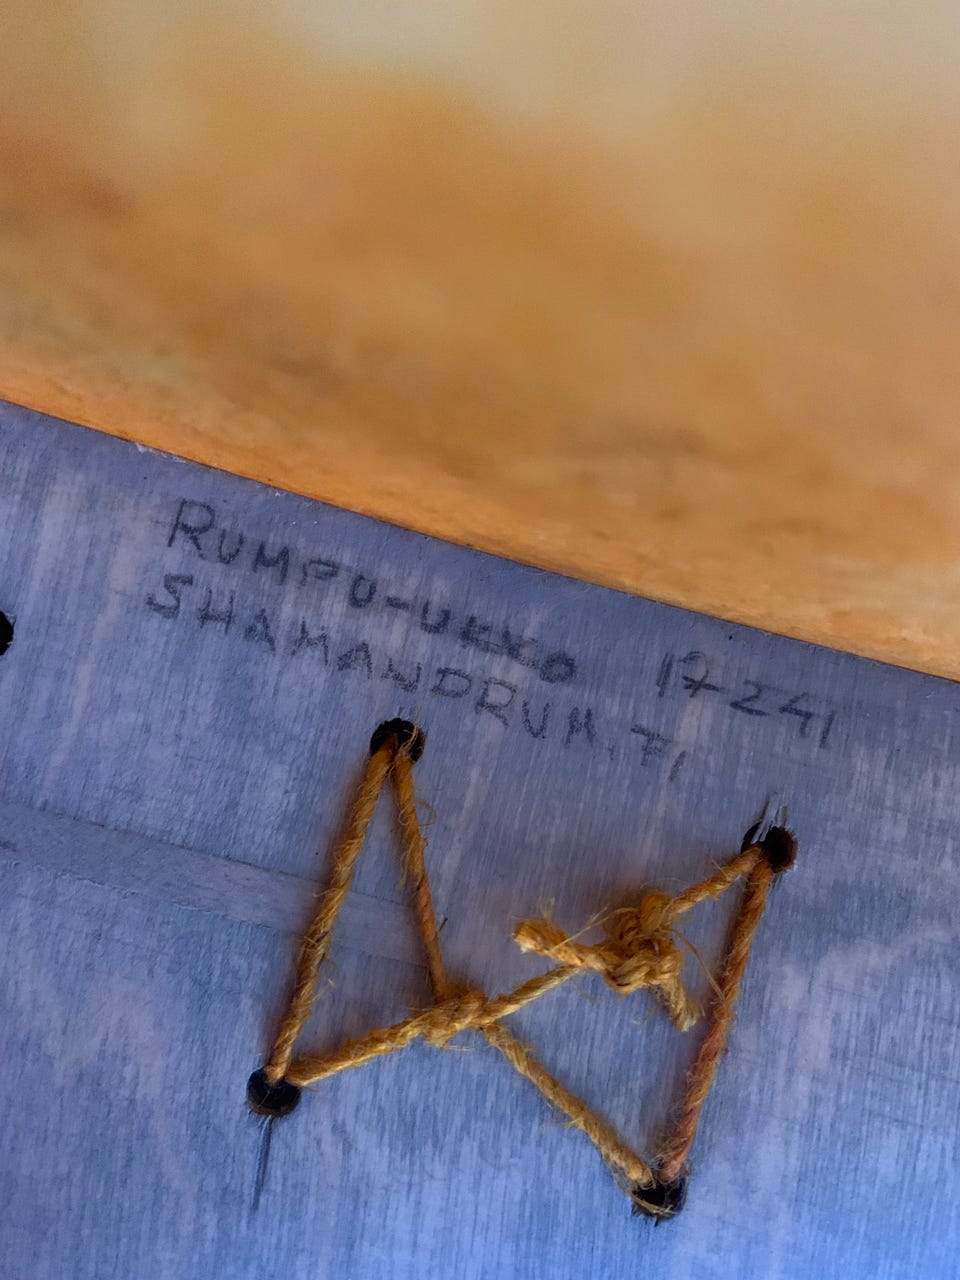 RUMPU-UKKO 17-241
SHAMANDRUM.FI